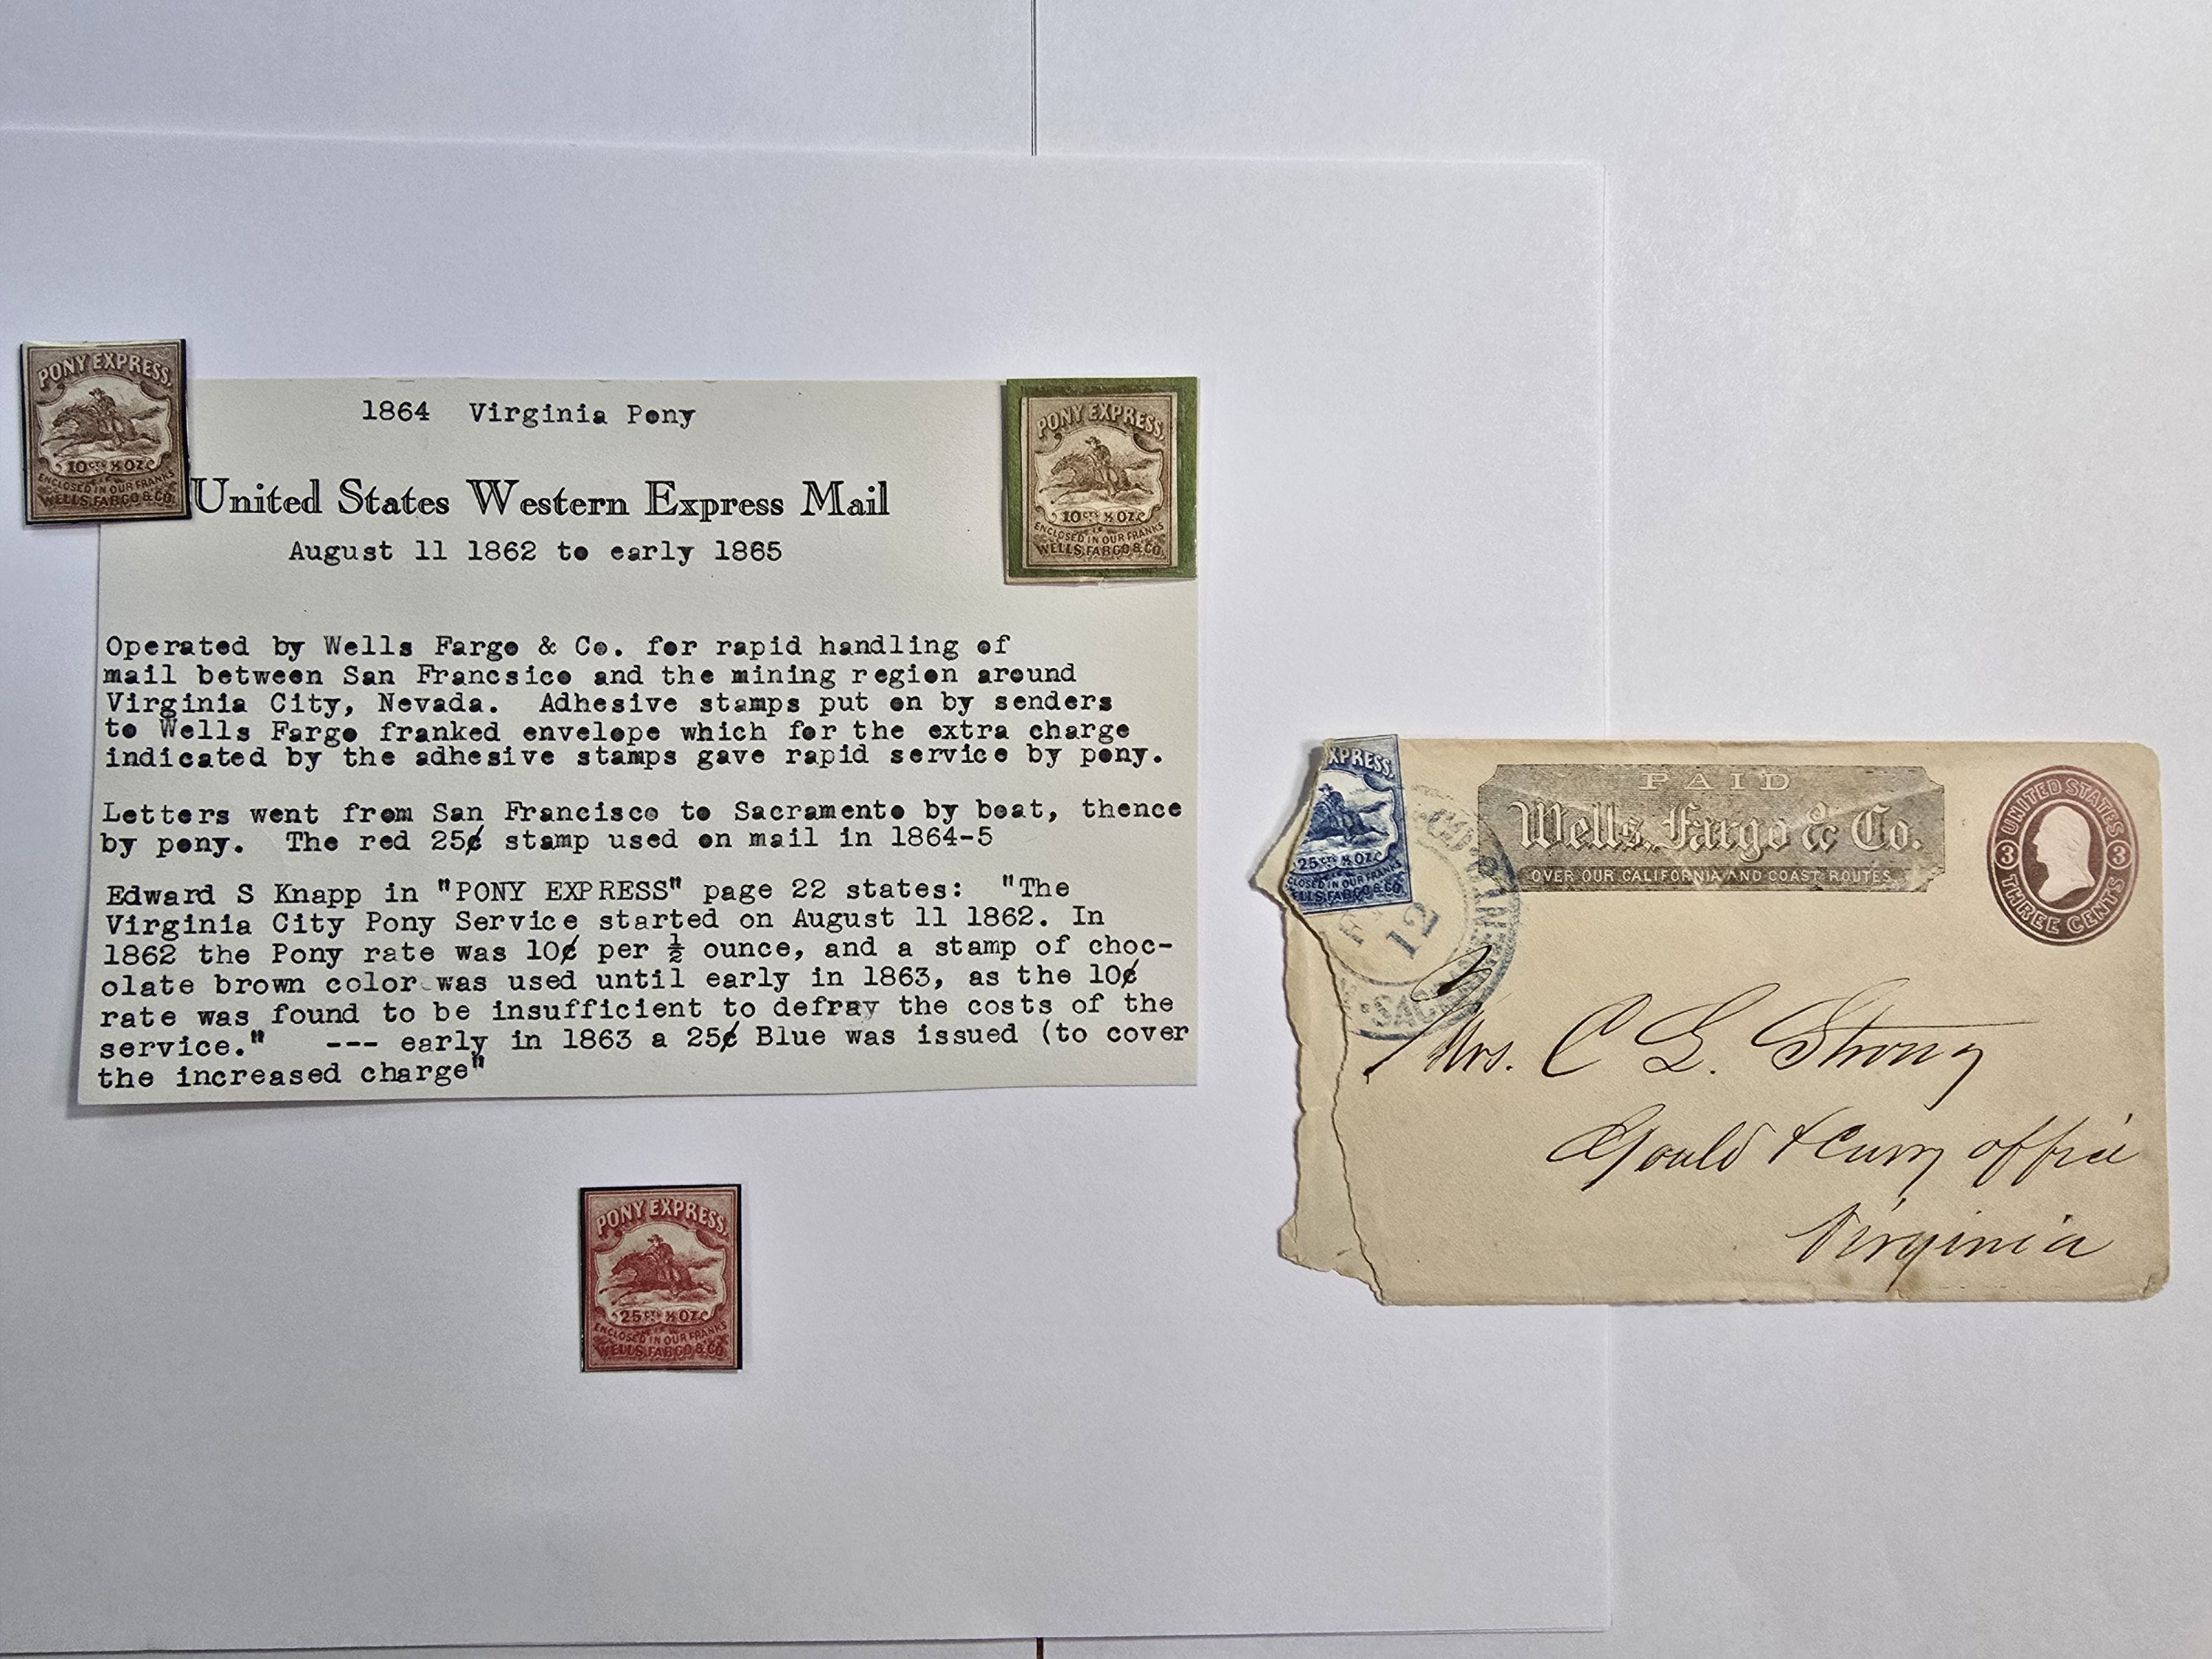 PONY EXPRESS.
10 CTS ½ OZ.
ENCLOSED IN OUR FRANKS
WELLS, FARGO & CO.
1864 Virginia Pony
United States Western Express Mail
August 11 1862 to early 1865
PONY EXPRESS.
10 CTS ½ OZ.
ENCLOSED IN OUR FRANKS
WELLS, FARGO & CO.
Operated by Wells Fargo & Co. for rapid handling of
mail between San Francsico and the mining region around
Virginia City, Nevada. Adhesive stamps put on by senders
to Wells Fargo franked envelope which for the extra charge
indicated by the adhesive stamps gave rapid service by pony.
Letters went from San Francisco to Sacramento by boat, thence
by pony. The red 25¢ stamp used on mail in 1864-5
Edward S Knapp in "PONY EXPRESS" page 22 states: "The
Virginia City Pony Service started on August 11 1862. In
1862 the Pony rate was 10¢ per ½ ounce, and a stamp of choc-
olate brown color was used until early in 1863, as the 10¢
rate was found to be insufficient to defray the costs of the
service." --- early in 1863 a 25¢ Blue was issued (to cover
the increased charge"
PONY EXPRESS.
25 CTS ½ OZ.
ENCLOSED IN OUR FRANKS
WELLS, FARGO & CO.
XPRESS.
25 CTS ½ OZ.
CLOSED IN OUR FRANKS
ELLS, FARGO & CO.
12
PAID
Wells, Fargo & Co.
OVER OUR CALIFORNIA AND COAST ROUTES.
UNITED STATES
3 3
THREE CENTS
Mrs. C L. Strong
Gould & Curry office
Virginia